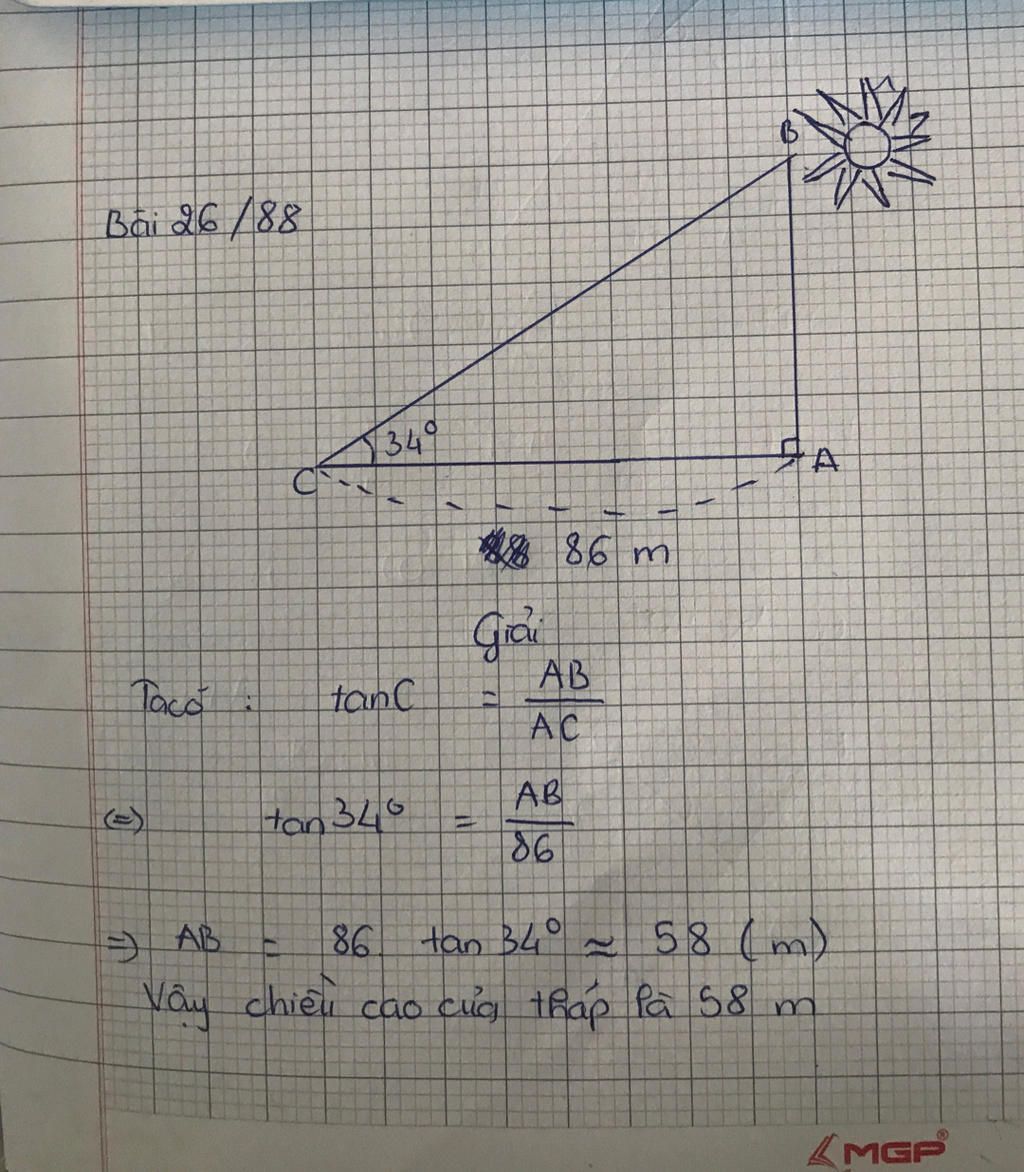 B
Bài 26/88
34°
C
A
86 m
Giải
Ta có : tanC = AB/AC
(=) tan 34° = AB/86
=) AB = 86. tan 34° ≈ 58 (m)
Vậy chiều cao của tháp là 58 m
MGP®